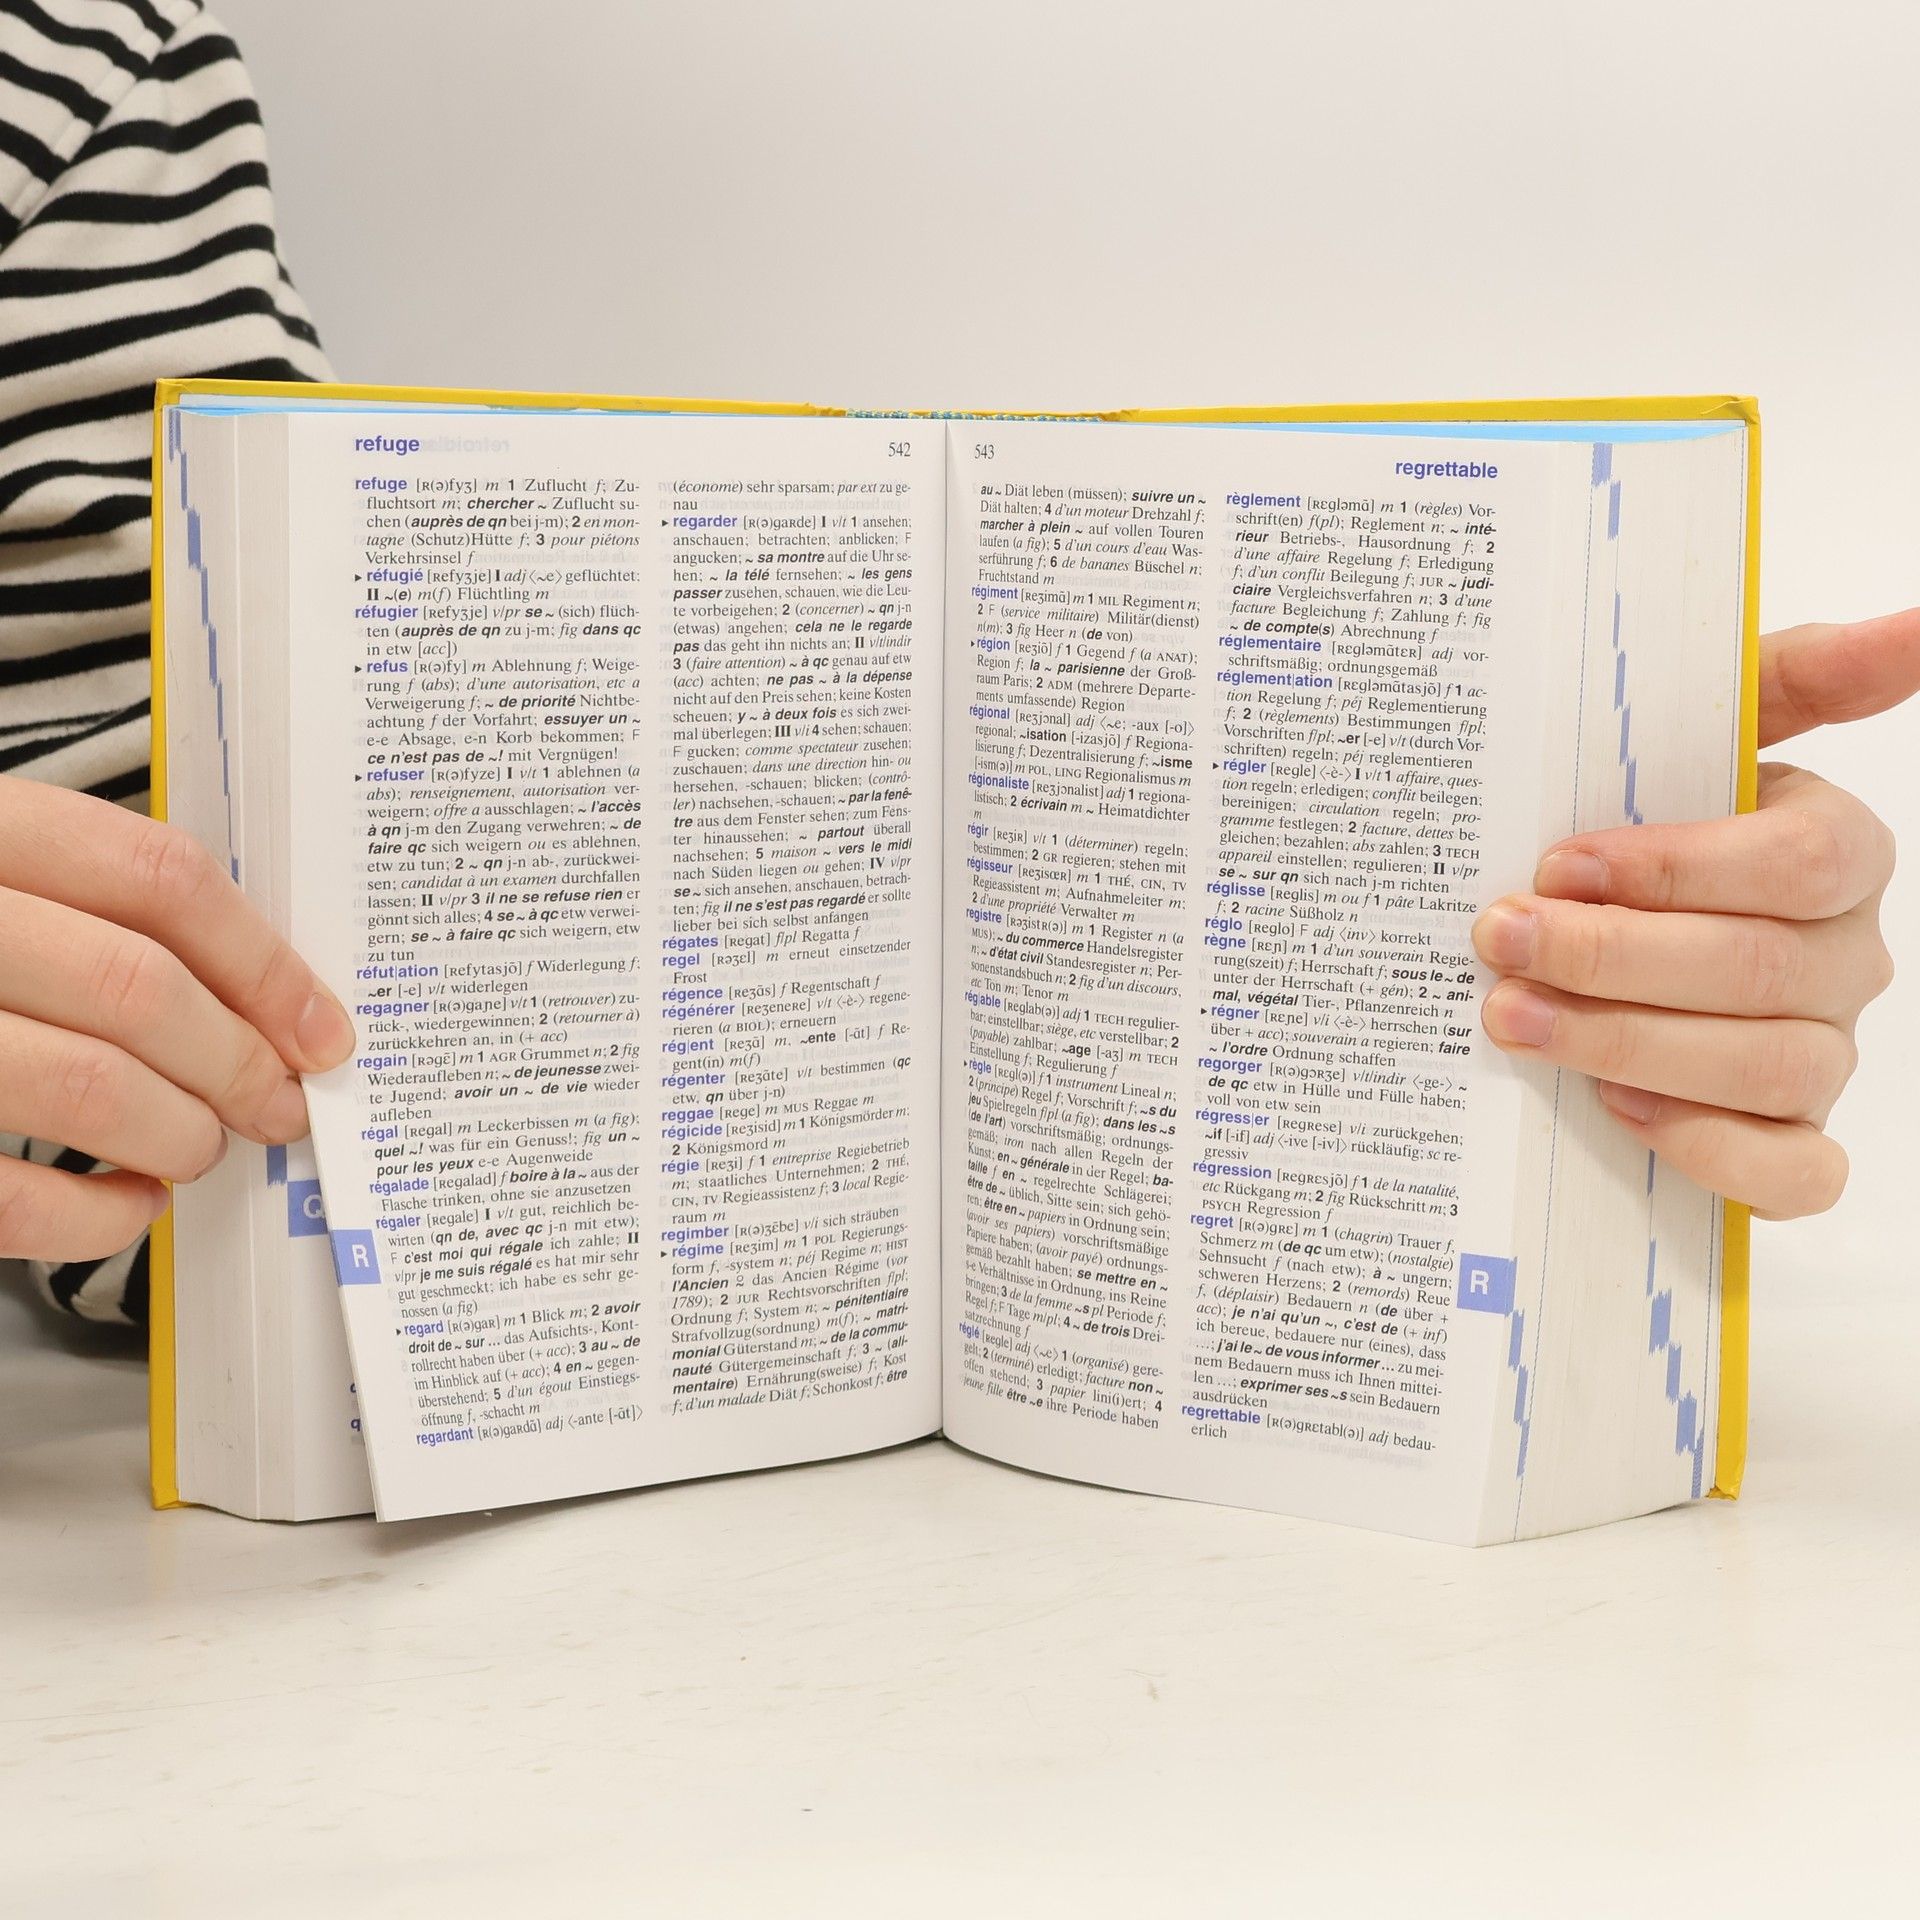 refuge
542
refuge [ʀ(ə)fyʒ] m 1 Zuflucht f; Zu-
fluchtsort m; chercher ~ Zuflucht su-
chen (auprès de qn bei j-m); 2 en mon-
tagne (Schutz)Hütte f; 3 pour piétons
Verkehrsinsel f
▸ réfugié [ʀefyʒje] I adj ⟨~e⟩ geflüchtet;
II ~(e) m(f) Flüchtling m
réfugier [ʀefyʒje] v/pr se ~ (sich) flüch-
ten (auprès de qn zu j-m; fig dans qc
in etw [acc])
▸ refus [ʀ(ə)fy] m Ablehnung f; Weige-
rung f (abs); d'une autorisation, etc a
Verweigerung f; ~ de priorité Nichtbe-
achtung f der Vorfahrt; essuyer un ~
e-e Absage, e-n Korb bekommen; F
ce n'est pas de ~! mit Vergnügen!
▸ refuser [ʀ(ə)fyze] I v/t 1 ablehnen (a
abs); renseignement, autorisation ver-
weigern; offre a ausschlagen; ~ l'accès
à qn j-m den Zugang verwehren; ~ de
faire qc sich weigern ou es ablehnen,
etw zu tun; 2 ~ qn j-n ab-, zurückwei-
sen; candidat à un examen durchfallen
lassen; II v/pr 3 il ne se refuse rien er
gönnt sich alles; 4 se ~ à qc etw verwei-
gern; se ~ à faire qc sich weigern, etw
zu tun
réfut|ation [ʀefytasjõ] f Widerlegung f;
~er [-e] v/t widerlegen
regagner [ʀ(ə)gaɲe] v/t 1 (retrouver) zu-
rück-, wiedergewinnen; 2 (retourner à)
zurückkehren an, in (+ acc)
regain [ʀəgɛ̃] m 1 AGR Grummet n; 2 fig
Wiederaufleben n; ~ de jeunesse zwei-
te Jugend; avoir un ~ de vie wieder
aufleben
régal [ʀegal] m Leckerbissen m (a fig);
quel ~! was für ein Genuss!; fig un ~
pour les yeux e-e Augenweide
régalade [ʀegalad] f boire à la ~ aus der
Flasche trinken, ohne sie anzusetzen
régaler [ʀegale] I v/t gut, reichlich be-
wirten (qn de, avec qc j-n mit etw);
F c'est moi qui régale ich zahle; II
v/pr je me suis régalé es hat mir sehr
gut geschmeckt; ich habe es sehr ge-
nossen (a fig)
▸ regard [ʀ(ə)gaʀ] m 1 Blick m; 2 avoir
droit de ~ sur ... das Aufsichts-, Kont-
rollrecht haben über (+ acc); 3 au ~ de
im Hinblick auf (+ acc); 4 en ~ gegen-
überstehend; 5 d'un égout Einstiegs-
öffnung f, -schacht m
regardant [ʀ(ə)gaʀdɑ̃] adj ⟨-ante [-ɑ̃t]⟩
(économe) sehr sparsam; par ext zu ge-
nau
▸ regarder [ʀ(ə)gaʀde] I v/t 1 ansehen;
anschauen; betrachten; anblicken; F
angucken; ~ sa montre auf die Uhr se-
hen; ~ la télé fernsehen; ~ les gens
passer zusehen, schauen, wie die Leu-
te vorbeigehen; 2 (concerner) ~ qn j-n
(etwas) angehen; cela ne le regarde
pas das geht ihn nichts an; II v/t/indir
3 (faire attention) ~ à qc genau auf etw
(acc) achten; ne pas ~ à la dépense
nicht auf den Preis sehen; keine Kosten
scheuen; y ~ à deux fois es sich zwei-
mal überlegen; III v/i 4 sehen; schauen;
F gucken; comme spectateur zusehen;
zuschauen; dans une direction hin- ou
hersehen, -schauen; blicken; (contrô-
ler) nachsehen, -schauen; ~ par la fenê-
tre aus dem Fenster sehen; zum Fens-
ter hinaussehen; ~ partout überall
nachsehen; 5 maison ~ vers le midi
nach Süden liegen ou gehen; IV v/pr
se ~ sich ansehen, anschauen, betrach-
ten; fig il ne s'est pas regardé er sollte
lieber bei sich selbst anfangen
régates [ʀegat] f/pl Regatta f
regel [ʀəʒɛl] m erneut einsetzender
Frost
régence [ʀeʒɑ̃s] f Regentschaft f
régénérer [ʀeʒeneʀe] v/t ⟨-è-⟩ regene-
rieren (a BIOL); erneuern
rég|ent [ʀeʒɑ̃] m, ~ente [-ɑ̃t] f Re-
gent(in) m(f)
régenter [ʀeʒɑ̃te] v/t bestimmen (qc
etw, qn über j-n)
reggae [ʀege] m MUS Reggae m
régicide [ʀeʒisid] m 1 Königsmörder m;
2 Königsmord m
régie [ʀeʒi] f 1 entreprise Regiebetrieb
m; staatliches Unternehmen; 2 THÉ,
CIN, TV Regieassistenz f; 3 local Regie-
raum m
regimber [ʀ(ə)ʒɛ̃be] v/i sich sträuben
▸ régime [ʀeʒim] m 1 POL Regierungs-
form f, -system n; péj Regime n; HIST
l'Ancien ♎ das Ancien Régime (vor
1789); 2 JUR Rechtsvorschriften f/pl;
Ordnung f; System n; ~ pénitentiaire
Strafvollzug(sordnung) m(f); ~ matri-
monial Güterstand m; ~ de la commu-
nauté Gütergemeinschaft f; 3 ~ (ali-
mentaire) Ernährung(sweise) f; Kost
f; d'un malade Diät f; Schonkost f; être
Q
R
q
543
regrettable
au ~ Diät leben (müssen); suivre un ~
Diät halten; 4 d'un moteur Drehzahl f;
marcher à plein ~ auf vollen Touren
laufen (a fig); 5 d'un cours d'eau Was-
serführung f; 6 de bananes Büschel n;
Fruchtstand m
régiment [ʀeʒimɑ̃] m 1 MIL Regiment n;
2 F (service militaire) Militär(dienst)
n(m); 3 fig Heer n (de von)
▸ région [ʀeʒjõ] f 1 Gegend f (a ANAT);
Region f; la ~ parisienne der Groß-
raum Paris; 2 ADM (mehrere Departe-
ments umfassende) Region
régional [ʀeʒjɔnal] adj ⟨~e; -aux [-o]⟩
regional; ~isation [-izasjõ] f Regiona-
lisierung f; Dezentralisierung f; ~isme
[-ism(ə)] m POL, LING Regionalismus m
régionaliste [ʀeʒjɔnalist] adj 1 regiona-
listisch; 2 écrivain m ~ Heimatdichter
m
régir [ʀeʒiʀ] v/t 1 (déterminer) regeln;
bestimmen; 2 GR regieren; stehen mit
régisseur [ʀeʒisœʀ] m 1 THÉ, CIN, TV
Regieassistent m; Aufnahmeleiter m;
2 d'une propriété Verwalter m
registre [ʀəʒistʀ(ə)] m 1 Register n (a
MUS); ~ du commerce Handelsregister
n; ~ d'état civil Standesregister n; Per-
sonenstandsbuch n; 2 fig d'un discours,
etc Ton m; Tenor m
régl|able [ʀeglab(lə)] adj 1 TECH regulier-
bar; einstellbar; siège, etc verstellbar; 2
(payable) zahlbar; ~age [-aʒ] m TECH
Einstellung f; Regulierung f
▸ règle [ʀɛgl(ə)] f 1 instrument Lineal n;
2 (principe) Regel f; Vorschrift f; ~s du
jeu Spielregeln f/pl (a fig); dans les ~s
(de l'art) vorschriftsmäßig; ordnungs-
gemäß; iron nach allen Regeln der
Kunst; en ~ générale in der Regel; ba-
taille f en ~ regelrechte Schlägerei;
être de ~ üblich, Sitte sein; sich gehö-
ren; être en ~ papiers in Ordnung sein;
(avoir ses papiers) vorschriftsmäßige
Papiere haben; (avoir payé) ordnungs-
gemäß bezahlt haben; se mettre en ~
s-e Verhältnisse in Ordnung, ins Reine
bringen; 3 de la femme ~s pl Periode f;
Regel f; F Tage m/pl; 4 ~ de trois Drei-
satzrechnung f
réglé [ʀegle] adj ⟨~e⟩ 1 (organisé) gere-
gelt; 2 (terminé) erledigt; facture non ~
offen stehend; 3 papier lini(i)ert; 4
jeune fille être ~e ihre Periode haben
règlement [ʀɛgləmɑ̃] m 1 (règles) Vor-
schrift(en) f(pl); Reglement n; ~ inté-
rieur Betriebs-, Hausordnung f; 2
d'une affaire Regelung f; Erledigung
f; d'un conflit Beilegung f; JUR ~ judi-
ciaire Vergleichsverfahren n; 3 d'une
facture Begleichung f; Zahlung f; fig
~ de compte(s) Abrechnung f
réglementaire [ʀɛgləmɑ̃tɛʀ] adj vor-
schriftsmäßig; ordnungsgemäß
réglement|ation [ʀɛgləmɑ̃tasjõ] f 1 ac-
tion Regelung f; péj Reglementierung
f; 2 (règlements) Bestimmungen f/pl;
Vorschriften f/pl; ~er [-e] v/t (durch Vor-
schriften) regeln; péj reglementieren
▸ régler [ʀegle] ⟨-è-⟩ I v/t 1 affaire, ques-
tion regeln; erledigen; conflit beilegen;
bereinigen; circulation regeln; pro-
gramme festlegen; 2 facture, dettes be-
gleichen; bezahlen; abs zahlen; 3 TECH
appareil einstellen; regulieren; II v/pr
se ~ sur qn sich nach j-m richten
réglisse [ʀeglis] m ou f 1 pâte Lakritze
f; 2 racine Süßholz n
réglo [ʀeglo] F adj ⟨inv⟩ korrekt
règne [ʀɛɲ] m 1 d'un souverain Regie-
rung(szeit) f; Herrschaft f; sous le ~ de
unter der Herrschaft (+ gén); 2 ~ ani-
mal, végétal Tier-, Pflanzenreich n
▸ régner [ʀeɲe] v/i ⟨-è-⟩ herrschen (sur
über + acc); souverain a regieren; faire
~ l'ordre Ordnung schaffen
regorger [ʀ(ə)gɔʀʒe] v/t/indir ⟨-ge-⟩ ~
de qc etw in Hülle und Fülle haben;
voll von etw sein
régress|er [ʀegʀese] v/i zurückgehen;
~if [-if] adj ⟨-ive [-iv]⟩ rückläufig; sc re-
gressiv
régression [ʀegʀesjõ] f 1 de la natalité,
etc Rückgang m; 2 fig Rückschritt m; 3
PSYCH Regression f
regret [ʀ(ə)gʀɛ] m 1 (chagrin) Trauer f,
Schmerz m (de qc um etw); (nostalgie)
Sehnsucht f (nach etw); à ~ ungern;
schweren Herzens; 2 (remords) Reue
f, (déplaisir) Bedauern n (de über +
acc); je n'ai qu'un ~, c'est de (+ inf)
ich bereue, bedauere nur (eines), dass
...; j'ai le ~ de vous informer ... zu mei-
nem Bedauern muss ich Ihnen mittei-
len ...; exprimer ses ~s sein Bedauern
ausdrücken
regrettable [ʀ(ə)gʀɛtabl(ə)] adj bedau-
erlich
R